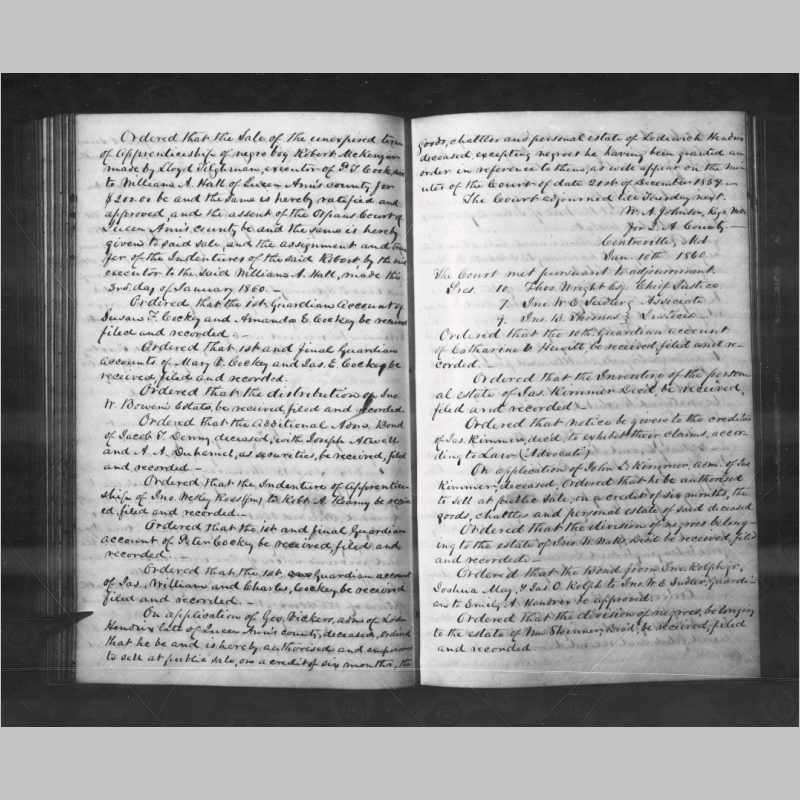 Ordered that the Sale of the unexpired term
of apprenticeship of negro boy Robert McKenzie
made by Lloyd Tilghman, executor of P. T. Cocke
to William A. Hall of Queen Ann's county, for
$200.00 be and the same is hereby ratified and
approved, and the assent of the Orpans Court of
Queen Ann's county be and the same is hereby
given to said sale, and the assignment and
fer of the Indentures of the said Robert by the said
executor to the said William A. Hall, made this
3rd day of January 1860. —
Ordered that the 1st Guardian Account of
Susan F. Cockey and Amanda E. Cockey be received
filed and recorded —
Ordered that 1st and final Guardian
accounts of Mary C. Cockey and Jas. E. Cockey be
received, filed and recorded.
Ordered that the distribution on Jno
W. Bowen's Estate, be received filed and recorded
Ordered that the additional Adms. Bond
of Jacob T. Denny, deceased, with Joseph Atwell
and A. A. Duhamel, as securities, be received, filed
and recorded —
Ordered that the Indenture of apprentice-
ship of Jno. McKey Ross (fn) to Robt. A. Kearny be receiv
ed, filed and recorded —
Ordered that the 1st and final Guardian
account of Peter Cockey be received, filed and
recorded.
Ordered that the 1st Guardian account
of Jas. William and Charles, Cockey, be received
filed and recorded —
On application of Geo. Vickers, adm of Lode
Hendrix late of Queen Ann's county, deceased, ordered
that he be and is hereby authorised and empowered
to sell at public sale, on a credit of six months, the
goods, chattles and personal estate of Loderwick Hendrix
deceased, excepting negroes he having been granted an
order in reference to them, as will appear on the min
utes of the Court of date 21st of December 1859 —
The Court adjourned till Thursday next.
W. A. Johnson, Reg. Wills
for Q. A. County —
Centreville, Md
Jan. 10th 1860
The Court met pursuant to adjournment.
Pres. 10. Thos. Wright Esq. Chief Justice
7. Jno. W. E. Sudler } Associate
9. Jno. B. Thomas } Justices —
Ordered that the 10th Guardian account
of Catharine C. Hewitt, be received, filed and re-
corded. —
Ordered that the Inventory of the person
al estate of Jas. Rimmer Decd, be received,
filed and recorded.
Ordered that notice be given to the creditors
of Jas. Rimmer, decd, to exhibit their claims, accor-
ding to Law (Advocate)
On application of John L. Rimmer, adm. of Jas
Rimmer, deceased, Ordered that he be authorised
to sell at public sale, on a credit of six months, the
goods, chattles and personal estate of said deceased
Ordered that the division of negroes belong-
ing to the estate of Jno. W. Watts, Decd be received, filed
and recorded —
Ordered that the Bond from Jno. Rolph Jr,
Joshua May, & Jas. O. Rolph to Jno. W. E. Sudler, guardi
an to Emily A. Kendree be approved.
Ordered that the division of negroes, belonging
to the estate of Wm Skinner, Decd, be received, filed
and recorded